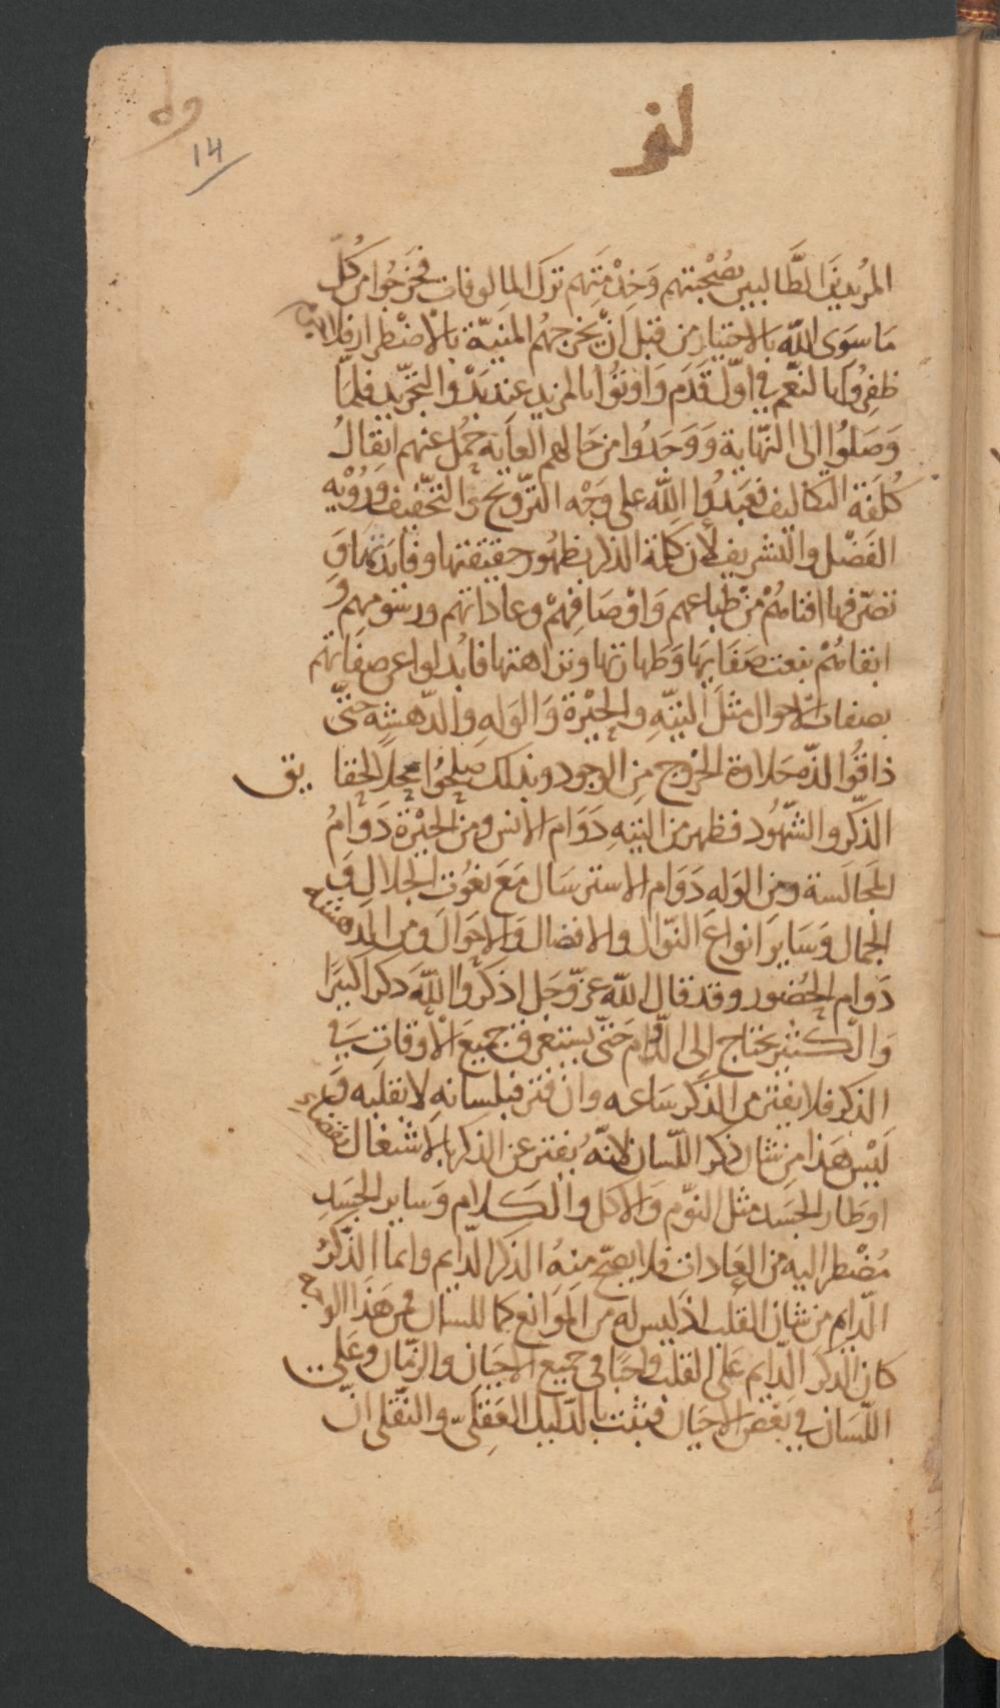 وله
14
لغو
المُريدينَ الطَّالبين بصُحْبتهم وَخِدْمَتِهم تَرَك المالوفات فَخَرَجُوا من كُلِّ
مَا سوَى الله بالاختيار من قبل انْ يخرجهُم المَنيّة بالاضْطرار فلا
ظفِرُوا بالنعَم في اوّل قَدَم وَاوتُوا بالمزيد عند بَدْو التجريد فلمّا
وَصَلُوا الى النّهَاية وَوَجَدُوا من حَالهم العَاية حمل عنهم اثقالُ
كُلفَة التكاليف فعَبَدُوا الله على وَجْه التَّرويح والتخفيف وَرُوْيه
الفَضْل والتشريف لان كلمة الذكر بظهُور حقيقتها وفايدتها وَ
تصرّفها افنامُمْ منْ طبَاعهم وَاوْصَافِهمْ وعَاداتهم ورسُومهم وَ
ابقاهُمْ بنعت صَفَايهَا وَطهَارتها ونزاهتها فابُدلوا عن صفَاتهم
بصفات الاحوال مثل التِّيهِ والحَيْرة وَالوَلهِ والدّهشِه حتّى
ذاقُوا لذّه حَلاوة الخرُوج مِن الوجود وبذلك صلحُوا محلاً لحقا يق
الذّكر والشّهُود فظهر من التيهِ دَوَام الانس ومن الحَيْرة دَوَامُ
المجَالسة ومن الوَله دَوَام الاسترسَال مَعَ نعُوت الجَلال وَ
الجمال وَسَايرَ انواعَ النّوال والافضال وَالاحْوَال وَمن الدهشه
دَوام الحُضور وقد قال الله عزّ وَجَل اذكرُوا اللهَ ذكرا كبيرًا
وَالكثير يحتاج الى الدّوام حَتى يستغرق جميع الاوقات في
الذكر فلا يفتر من الذكر سَاعه وان فتر فبلسانه لا بقلبه وَ
لَيْسَ هَذا من شان ذكر اللّسان لانّهُ يفتر عن الذكر بالاشتغال بقضاء
اوطار الجسَد مثل النوّم وَالاكل والكلام وَساير الجسَد
مُضْطر اليه من العَادات فلا يصحّ منهُ الذكر الدّايم وانما الذّكرُ
الدّايم من شان القلب اذ ليس له من الموَانع كما للسان فمن هَذا الوجه
كان الذكر الدّايم عَلى القلب واجبًا في جميع الاحيان والزمان وعَلى
اللّسان في بَعْض الاحيَان فثبت بالدّليل العَقلى والنّقلى انّ